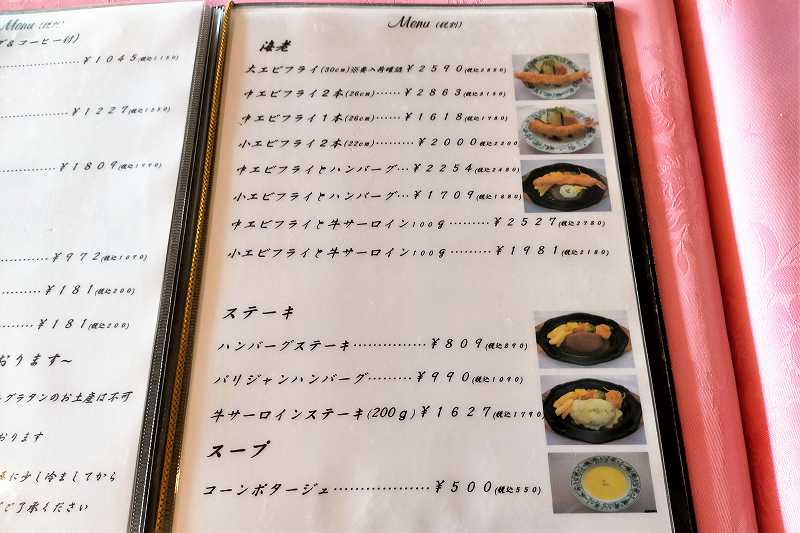 Menu (税別)
&コーヒー付)
¥1045(税込1150)
¥1227(税込1350)
¥1809(税込1990)
¥972(税込1070)
¥181(税込200)
¥181(税込200)
おります~
グラタンのお土産は不可
おります
に少し冷ましてから
ご了承ください
Menu (税別)
海老
大エビフライ(30cm)※要入荷確認¥2590(税込2850)
中エビフライ2本(26cm)……¥2863(税込3150)
中エビフライ1本(26cm)……¥1618(税込1780)
小エビフライ2本(22cm)………¥2000(税込2200)
中エビフライとハンバーグ…¥2254(税込2480)
小エビフライとハンバーグ…¥1709(税込1880)
中エビフライと牛サーロイン100g………¥2527(税込2780)
小エビフライと牛サーロイン100g………¥1981(税込2180)
ステーキ
ハンバーグステーキ……………¥809(税込890)
パリジャンハンバーグ………¥990(税込1090)
牛サーロインステーキ(200g)¥1627(税込1790)
スープ
コーンポタージュ………………¥500(税込550)